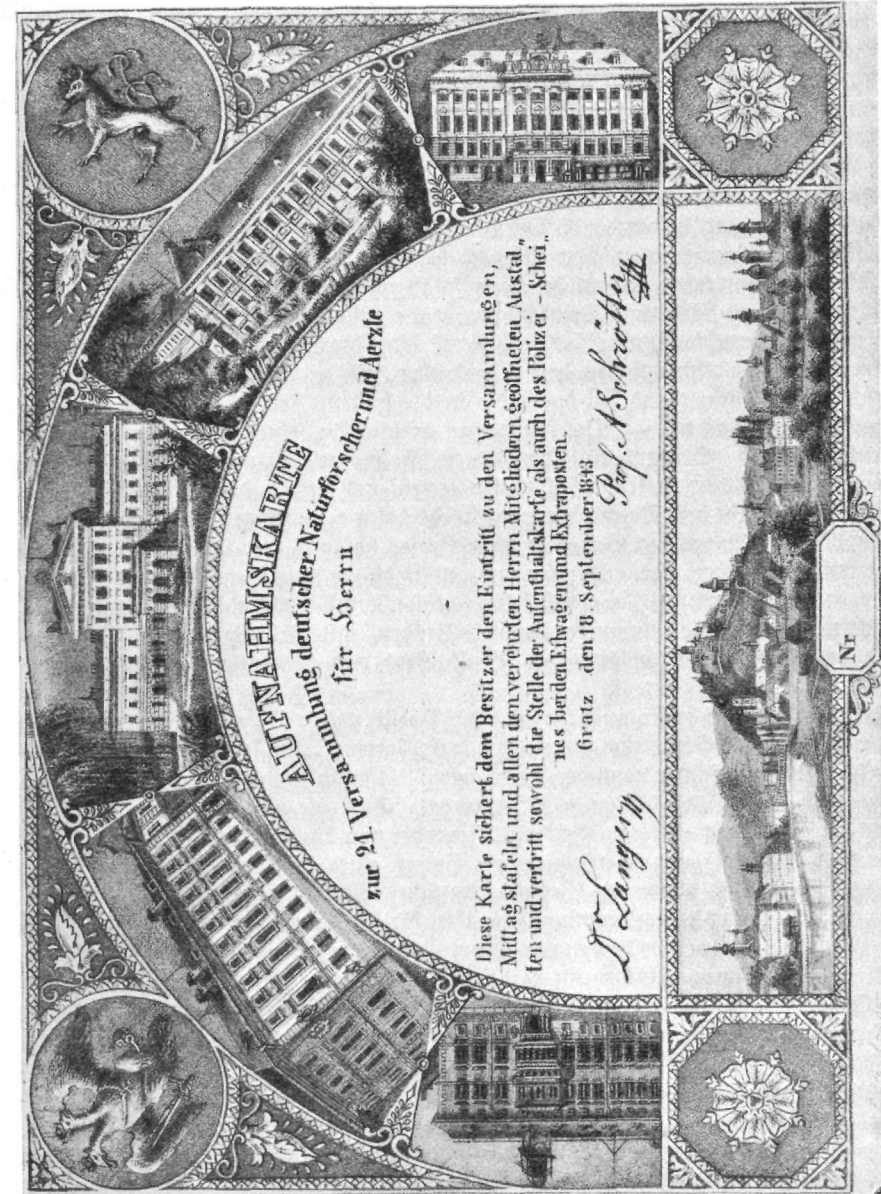 AUFNAHMSKARTE
zur 21. Versammlung deutscher Naturforscher und Aerzte
für Herrn
Diese Karte sichert dem Besitzer den Eintritt zu den Versammlungen,
Mittagstafeln und allen den verehrten Herrn Mitgliedern geöffneten Anstal„
ten und vertritt sowohl die Stelle der Aufenthaltskarte als auch des Polizei-Schei„
nes bei den Eilwagen und Extraposten.
Gratz den 18 September 1843
Dr Langer Prof. A Schrötter
Nr